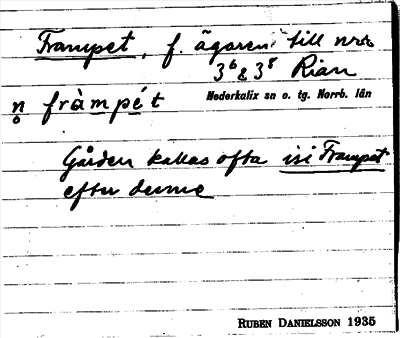 Frampet, f. ägaren till nr
3⁶ & 3⁸ Rian
Nederkalix sn o. tg. Norrb. län
n fràmpét
Gården kallas ofta isi Frampet
efter denne
RUBEN DANIELSSON 1935